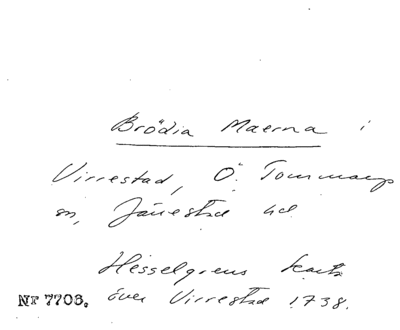 Brödia Maerna i
Virrestad, Ö. Tommarps
sn, Järrestad hd
Hesselgrens karta
Nr 7703. över Virrestad 1738.